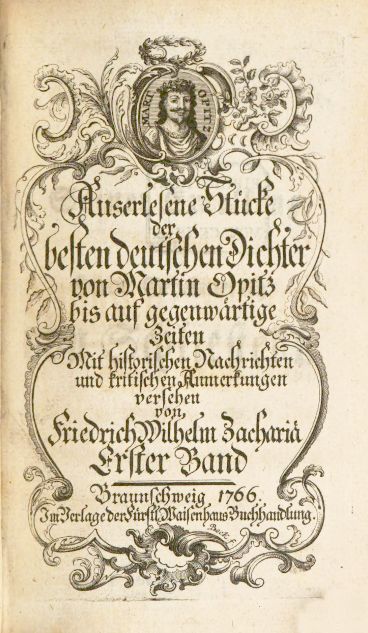 MARTIN OPITZ
Auserlesene Stücke
der
besten deutschen Dichter
von Martin Opitz
bis auf gegenwärtige
Zeiten
Mit historischen Nachrichten
und kritischen Anmerkungen
versehen
von
Friedrich Wilhelm Zachariä
Erster Band
Braunschweig 1766.
Im Verlage der Fürstl. Waisenhaus Buchhandlung.
Beck f.